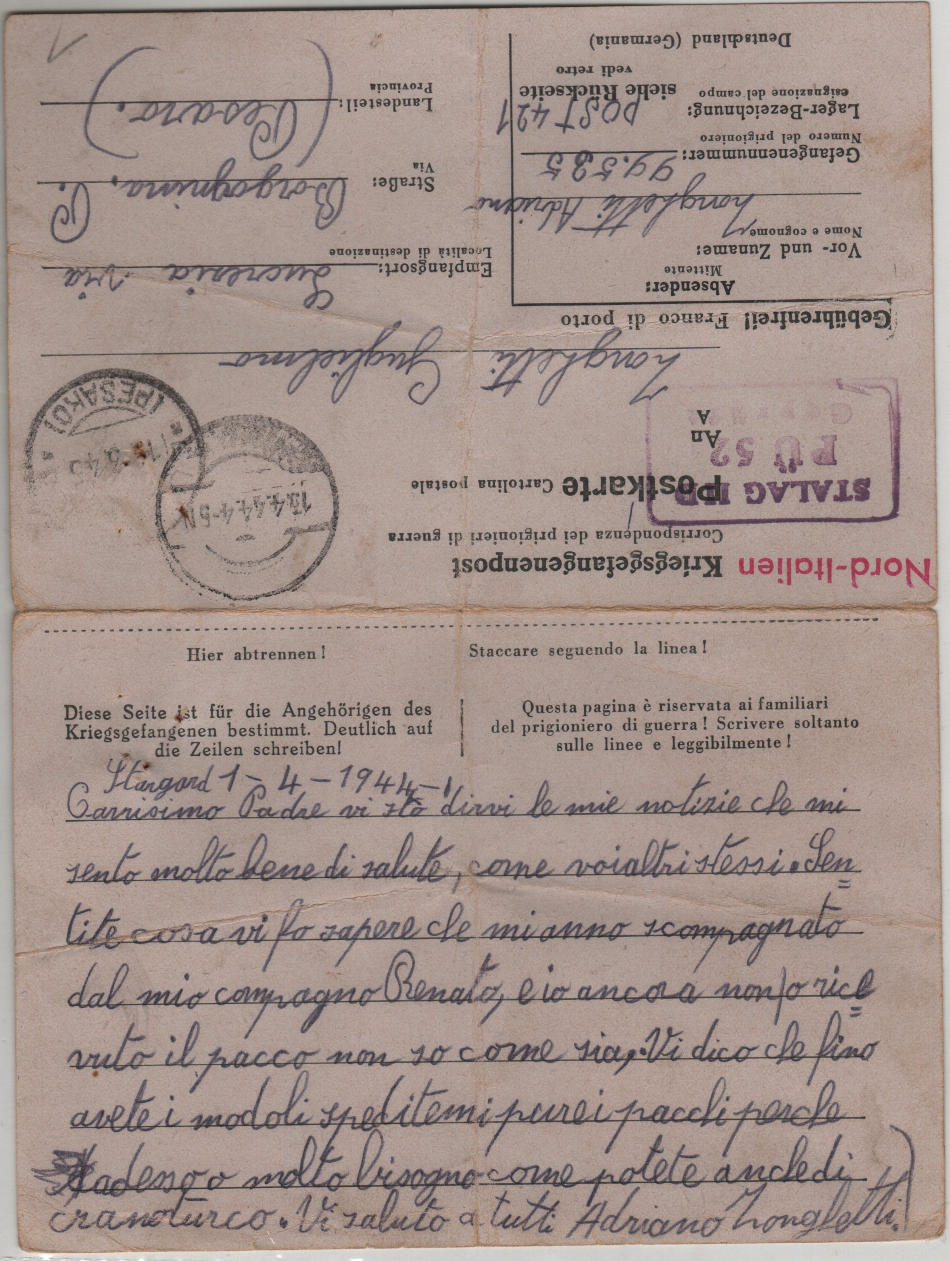 Nord-Italien
Kriegsgefangenenpost
Corrispondenza dei prigionieri di guerra
Postkarte Cartolina postale
STALAG II B
PÜ 52
An
A
13.4.44.4-5N
(PESARO)
Zonghetti Guglielmo
Gebührenfrei! Franco di porto
Absender:
Mittente
Vor- und Zuname:
Nome e cognome
Zonghetti Adriano
Gefangenennummer: 99.535
Numero del prigioniero
Lager-Bezeichnung: POST 421
esignazione del campo
siehe Rückseite
vedi retro
Deutschland (Germania)
Empfangsort: Lucresia via
Località di destinazione
Straße: Borgognina. P.
Via
Landesteil: (Pesaro.)
Provincia
1
Hier abtrennen! Staccare seguendo la linea!
Diese Seite ist für die Angehörigen des
Kriegsgefangenen bestimmt. Deutlich auf
die Zeilen schreiben!
Questa pagina è riservata ai familiari
del prigioniero di guerra! Scrivere soltanto
sulle linee e leggibilmente!
Stargard 1-4-1944-
Carrisimo Padre vi stò dirvi le mie notizie che mi
sento molto bene di salute, come voialtri stessi. Sen=
tite cosa vi fo sapere che mi anno scompagnato
dal mio compagno Renato, e io ancora non o rice=
vuto il pacco non so come sia,. Vi dico che fino
avete i modoli speditemi pure i pacchi perche
adesso o molto bisogno come potete anche di
cranoturco. Vi saluto a tutti Adriano Zonghetti.